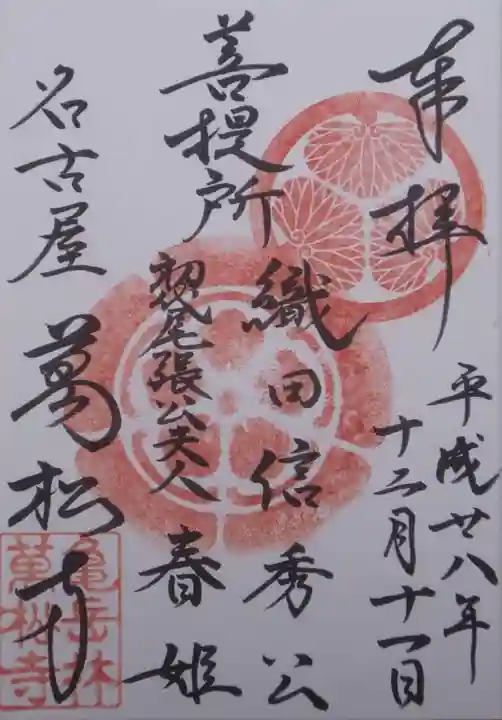 奉拝
平成廿八年
十二月十一日
菩提所
織田信秀公
初尾張公夫人 春姫
名古屋 萬松寺
亀岳林
萬松寺